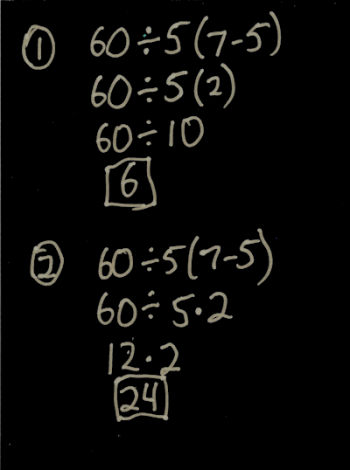 ① 60÷5(7-5)
60÷5(2)
60÷10
6
② 60÷5(7-5)
60÷5·2
12·2
24